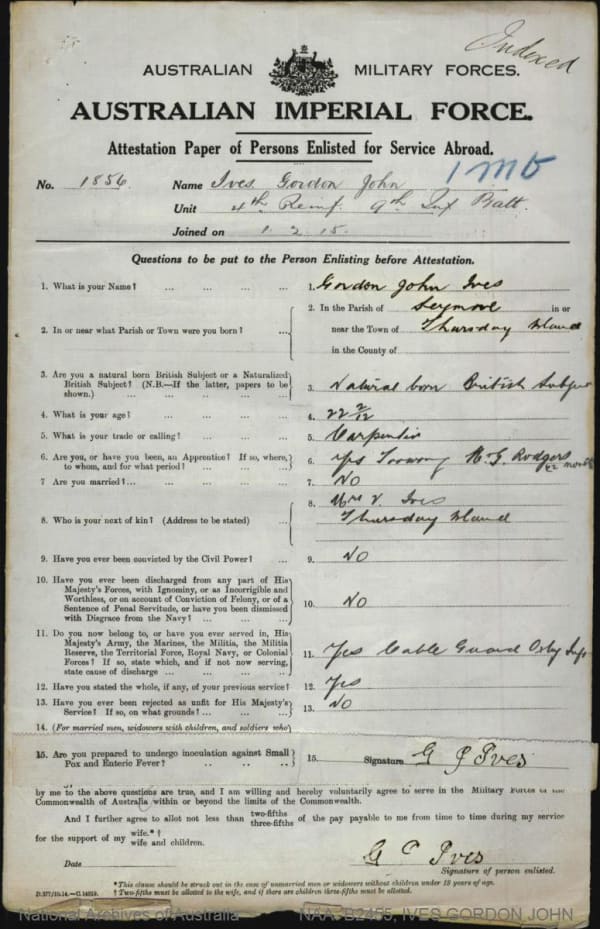 Indexed
AUSTRALIAN MILITARY FORCES.
AUSTRALIAN IMPERIAL FORCE.
Attestation Paper of Persons Enlisted for Service Abroad.
No. 1856 Name Ives Gordon John
Unit 4th Reinf. 9th Inf Batt.
Joined on 1 2 15
Questions to be put to the Person Enlisting before Attestation.
1. What is your Name? ... ... ... ... 1. Gordon John Ives
2. In or near what Parish or Town were you born? ... 2. In the Parish of in or
near the Town of Thursday Island
in the County of
3. Are you a natural born British Subject or a Naturalized
British Subject? (N.B.—If the latter, papers to be
shown.) ... ... ... ... ... 3. Natural born British Subject
4. What is your age? ... ... ... ... 4. 22 2/12
5. What is your trade or calling? ... ... ... 5. Carpenter
6. Are you, or have you been, an Apprentice? If so, where,
to whom, and for what period? ... ... ... 6. Yes Toowong Rodgers
7 Are you married?... ... ... ... ... 7. No
8. Who is your next of kin? (Address to be stated) ... 8. Mrs V. Ives
Thursday Island
9. Have you ever been convicted by the Civil Power? ... 9. No
10. Have you ever been discharged from any part of His
Majesty's Forces, with Ignominy, or as Incorrigible and
Worthless, or on account of Conviction of Felony, or of a
Sentence of Penal Servitude, or have you been dismissed
with Disgrace from the Navy? ... ... ... 10. No
11. Do you now belong to, or have you ever served in, His
Majesty's Army, the Marines, the Militia, the Militia
Reserve, the Territorial Force, Royal Navy, or Colonial
Forces? If so, state which, and if not now serving,
state cause of discharge ... ... ... ... 11. Yes Cable Guard
12. Have you stated the whole, if any, of your previous service? 12. Yes
13. Have you ever been rejected as unfit for His Majesty's
Service? If so, on what grounds? ... ... ... 13. No
14. (For married men, widowers with children, and soldiers who
15. Are you prepared to undergo inoculation against Small
Pox and Enteric Fever? .. .. .. 15. Signature G J Ives
by me to the above questions are true, and I am willing and hereby voluntarily agree to serve in the Military Forces of the
Commonwealth of Australia within or beyond the limits of the Commonwealth.
And I further agree to allot not less than two-fifths three-fifths of the pay payable to me from time to time during my service
for the support of my wife.*† wife and children.
Date G J Ives
Signature of person enlisted.
*This clause should be struck out in the case of unmarried men or widowers without children under 18 years of age.
† Two-fifths must be allotted to the wife, and if there are children three-fifths must be allotted.
National Archives of Australia NAA: B2455, IVES GORDON JOHN